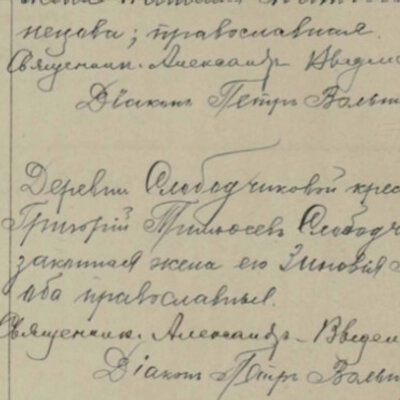 нецова; православная.
Священник: Александр Введе
Діаконъ Петръ Вольт
Деревни Слободчиковой крес
Григорій Тимофеевъ Слободч
законная жена его Зиновія
оба православные.
Священник: Александр Введе
Діаконъ Петръ Вольт